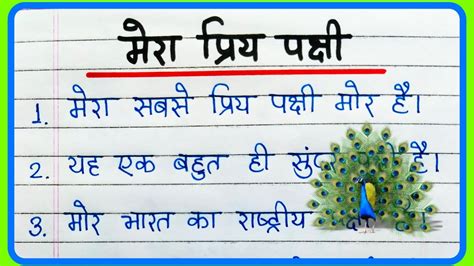 मेरा प्रिय पक्षी
1. मेरा सबसे प्रिय पक्षी मोर है।
2. यह एक बहुत ही है।
3. मोर भारत का राष्ट्रीय है।